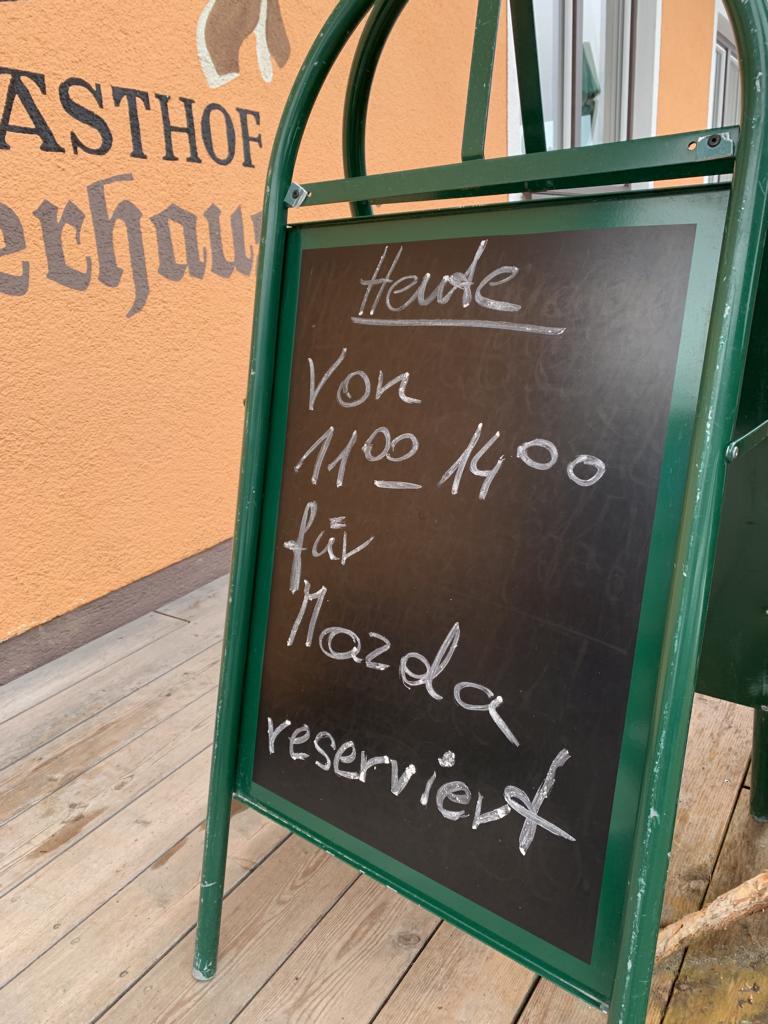 GASTHOF
erhaus
Heute
Von
11⁰⁰ - 14⁰⁰
für
Mazda
reserviert